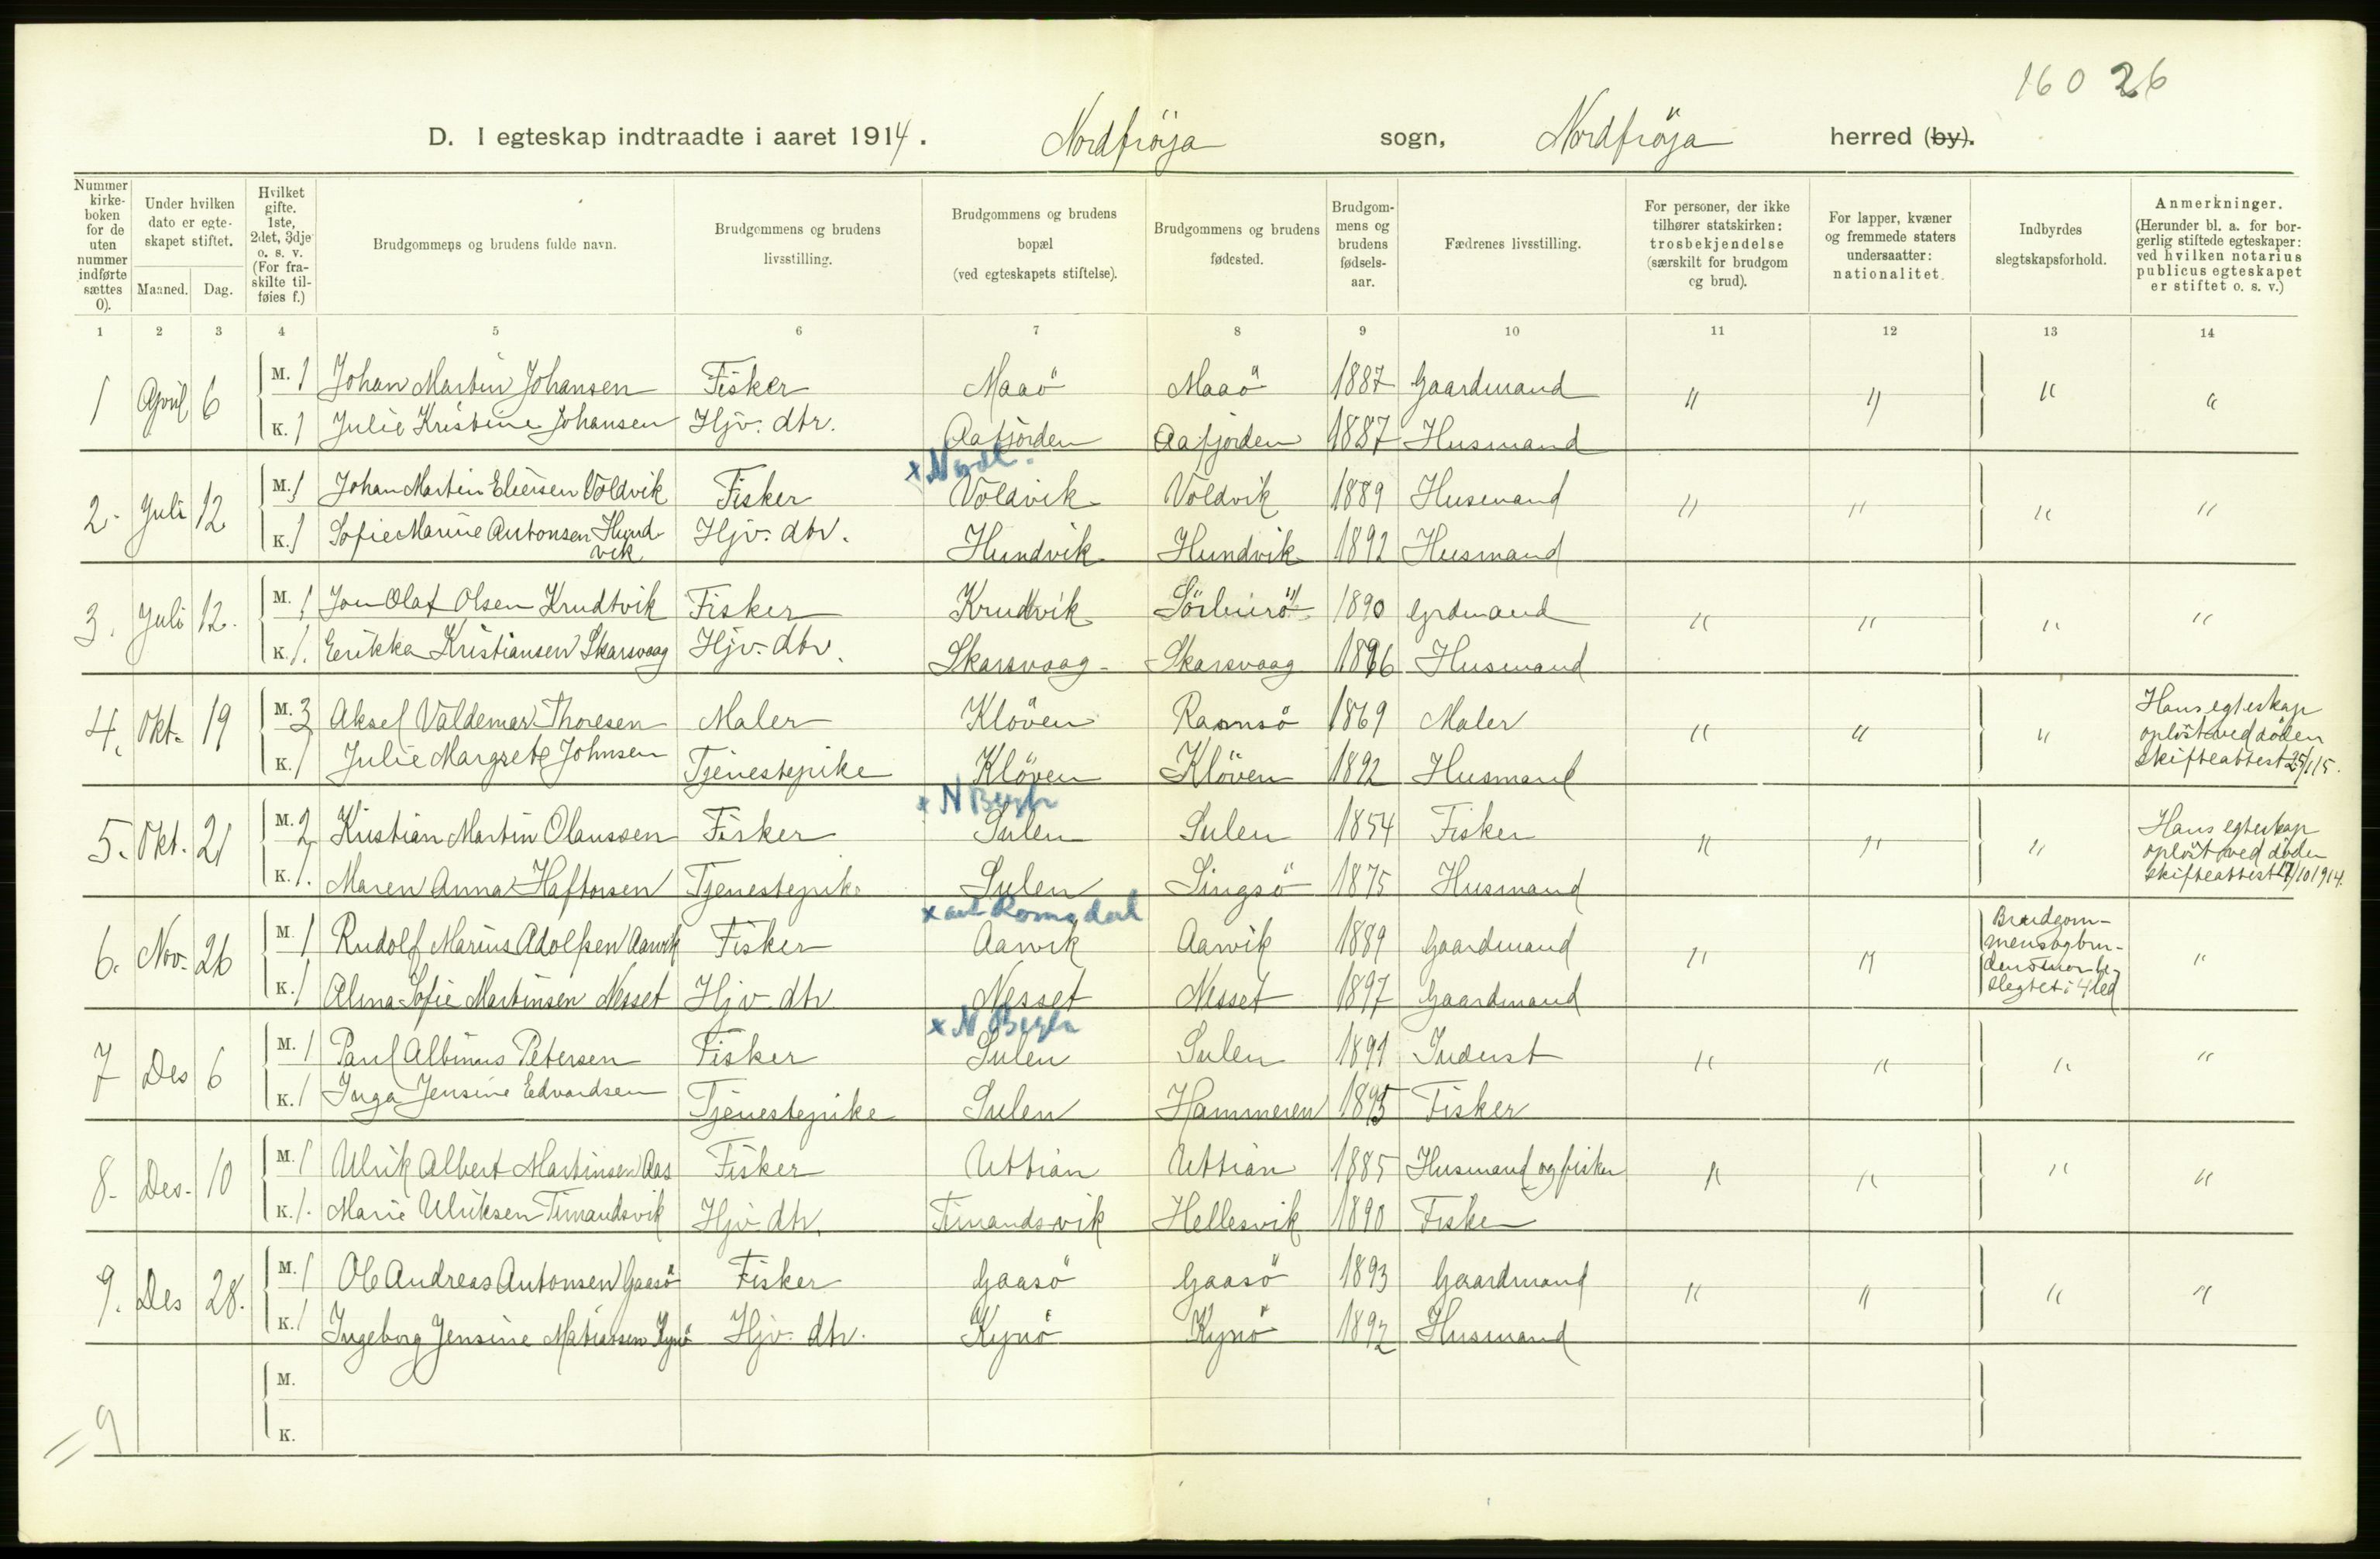 160 26
D. I egteskap indtraadte i aaret 1914. Nordfröya sogn, Nordfröya herred (by).
Nummer kirkeboken for de uten nummer indførte sættes 0).
Under hvilken dato er egteskapet stiftet.
Maaned. Dag.
Hvilket gifte. 1ste, 2det, 3dje o. s. v. (For fraskilte tilføies f.)
Brudgommens og brudens fulde navn.
Brudgommens og brudens livsstilling.
Brudgommens og brudens bopæl (ved egteskapets stiftelse).
Brudgommens og brudens fødested.
Brudgommens og brudens fødselsaar.
Fædrenes livsstilling.
For personer, der ikke tilhører statskirken: trosbekjendelse (særskilt for brudgom og brud).
For lapper, kvæner og fremmede staters undersaatter: nationalitet.
Indbyrdes slegtskapsforhold.
Anmerkninger. (Herunder bl. a. for borgerlig stiftede egteskaper: ved hvilken notarius publicus egteskapet er stiftet o. s. v.)
1 2 3 4 5 6 7 8 9 10 11 12 13 14
1 April 6 M. 1 Johan Martin Johansen Fisker Maaö Maaö 1887 Gaardmand " " " "
K. 1 Julie Kristine Johansen Hjv. dtr. Aafjorden Aafjorden 1887 Husmand
x Nordl.
2. Juli 12 M. 1 Johan Martin Eliersen Voldvik Fisker Voldvik Voldvik 1889 Husmand " " " "
K. 1 Sofie Marine Antonsen Hundvik Hjv. dtr. Hundvik Hundvik 1892 Husmand
3. Juli 12. M. 1 Jon Olaf Olsen Krudtvik Fisker Krudtvik 1890 Grdmand " " " "
K. 1. Erikka Kristiansen Skarsvaag Hjv. dtr. Skarsvaag Skarsvaag 1896 Husmand
4. Okt. 19 M. 3 Aksel Valdemar Thoresen Maler Klöven Ramsö 1869 Maler " " " Hans egteskap oplöst ved döden Skifteattest 25/1 15.
K. 1 Julie Margrete Johnsen Tjenestepike Klöven Klöven 1892 Husmand
x N Bergh
5. Okt. 21 M. 2 Kristian Martin Olaussen Fisker Sulen Sulen 1854 Fisker " " " Hans egteskap oplöst ved döden skifteattest 17/10 1914.
K. 1. Maren Anna Haftorsen Tjenestepike Sulen Singsö 1875 Husmand
x Romsdal
6. Nov. 26 M. 1 Rudolf Marius Adolfsen Aarvik Fisker Aarvik Aarvik 1889 Gaardmand " " Brudgommens og brudens mor beslegtet i 4 led "
K. 1 Alma Sofie Martinsen Nesset Hjv. dtr Nesset Nesset 1897 Gaardmand
x N Bergh
7 Des 6 M. 1 Paul Albinus Petersen Fisker Sulen Sulen 1891 Inderst " " " "
K. 1 Inga Jensine Edvardsen Tjenestepike Sulen Hammeren 1895 Fisker
8. Des. 10 M. 1 Ulrik Albert Martinsen Aas Fisker Uttian Uttian 1885 Husmand og fisker " " " "
K. 1. Marie Ulriksen Timandsvik Hjv. dtr. Timandsvik Hellesvik 1890 Fisker
9. Des 28. M. 1 Ole Andreas Antonsen Gaasö Fisker Gaasö Gaasö 1893 Gaardmand " " " "
K. 1 Ingeborg Jensine Matiassen Kynö Hjv. dtr. Kynö Kynö 1892 Husmand
M.
K.
= 9